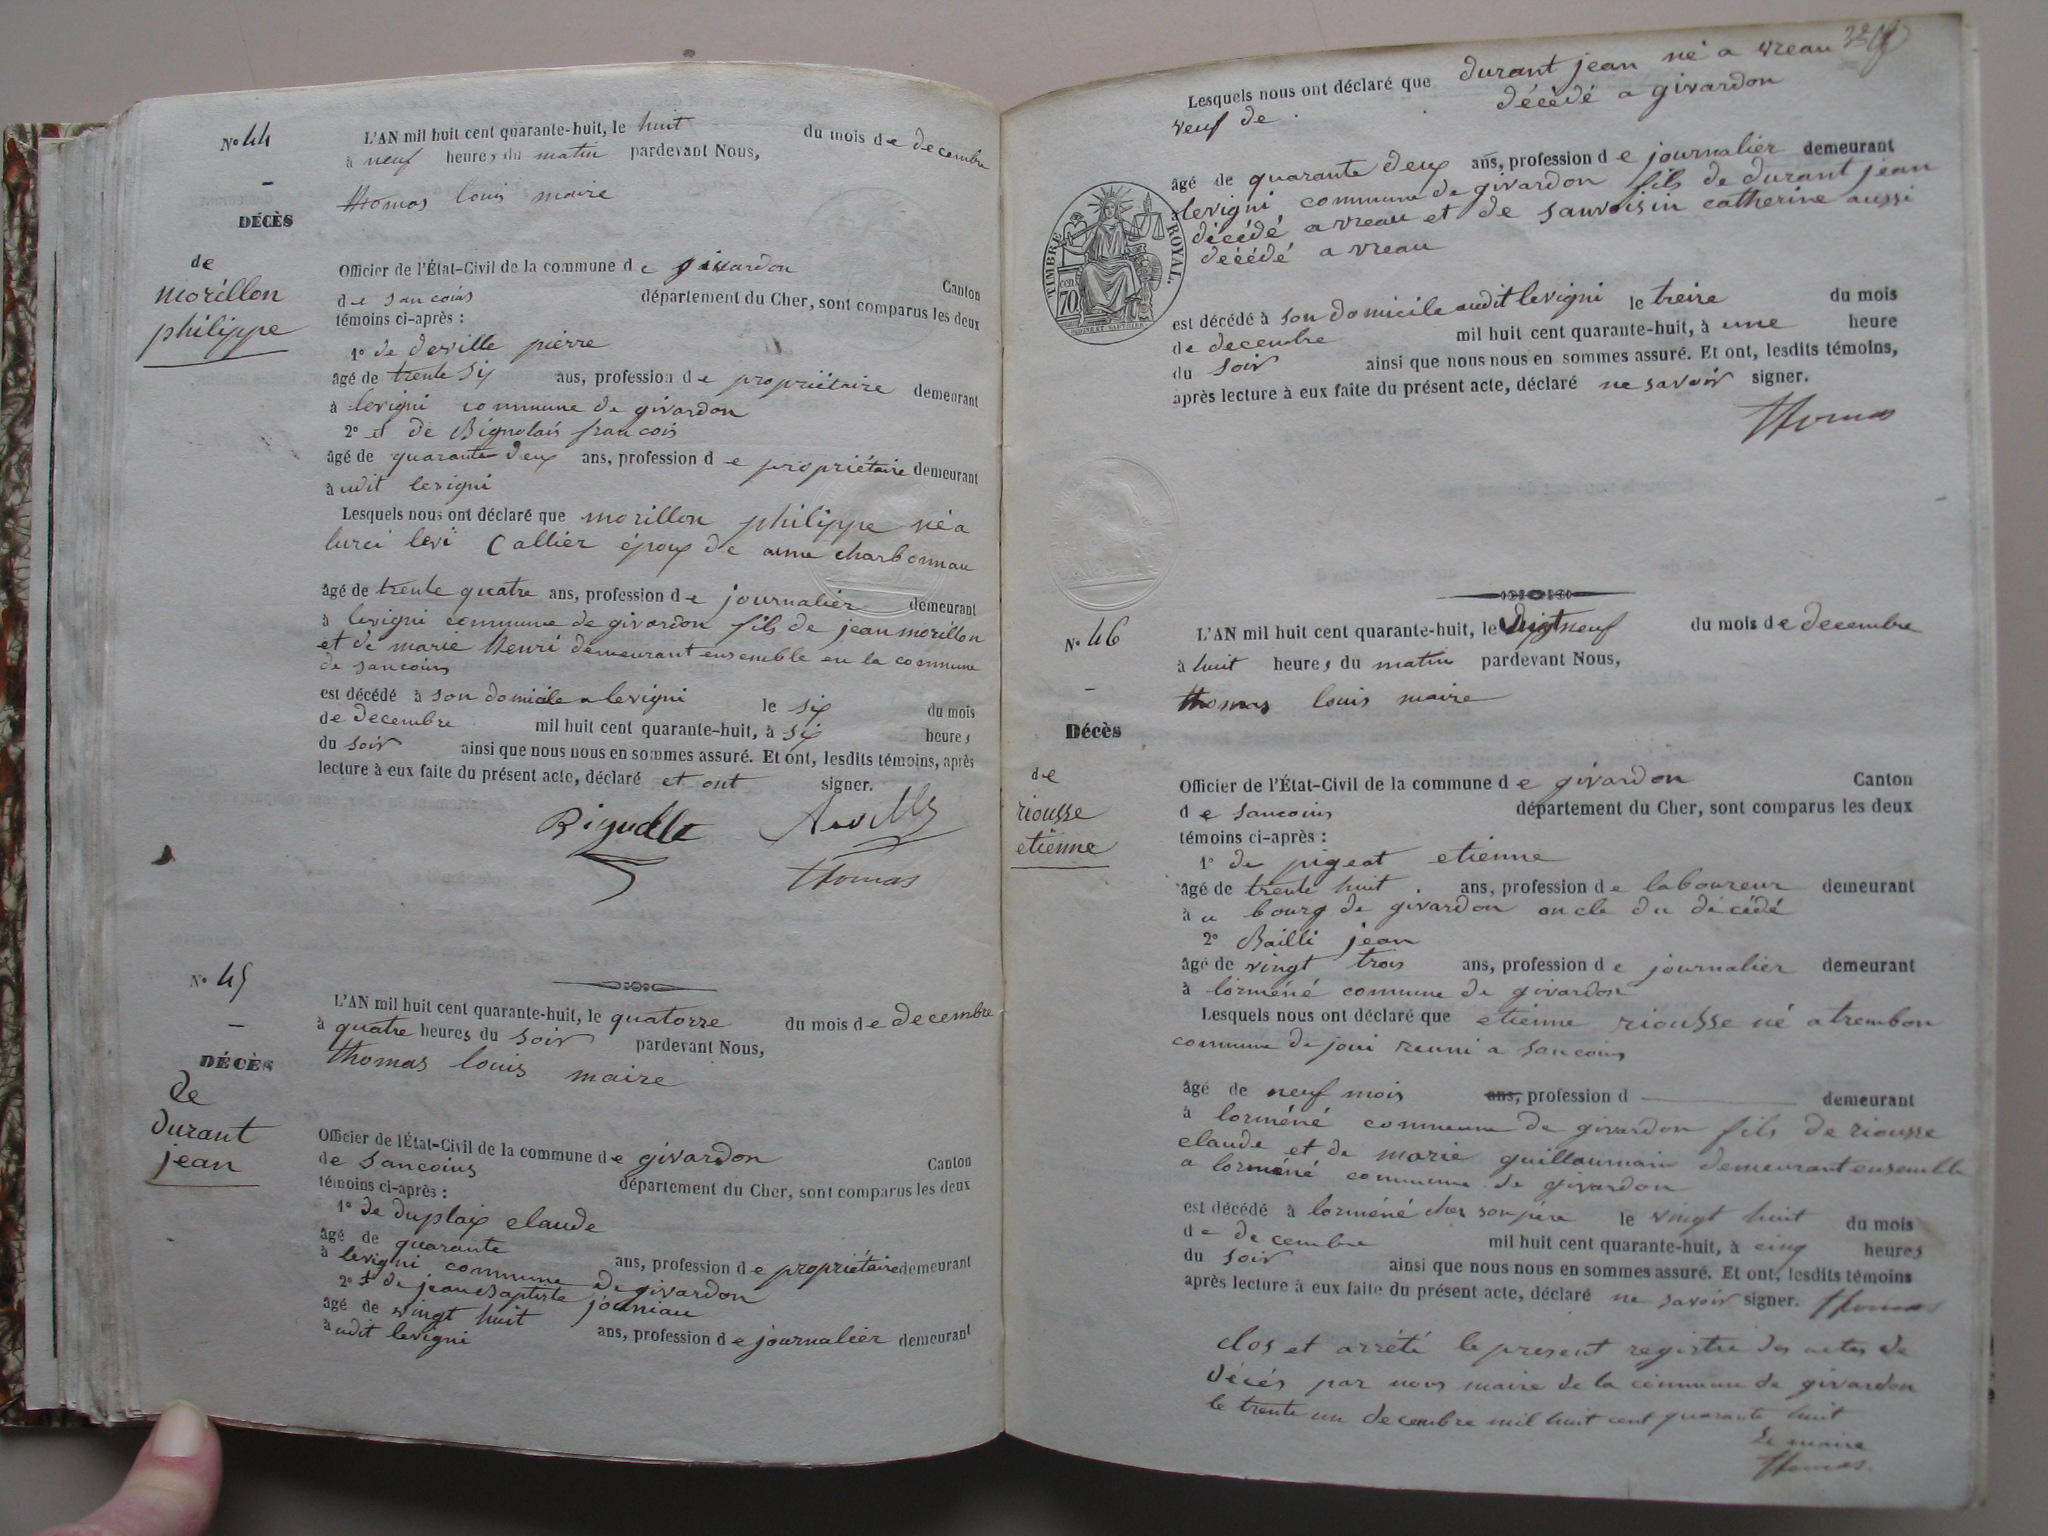 No 44
L'AN mil huit cent quarante-huit, le huit du mois de decembre
à neuf heures du matin pardevant Nous,
thomas louis maire
DÉCÈS
de
morillon
philippe
Officier de l'État-Civil de la commune de givardon Canton
de sancoins département du Cher, sont comparus les deux
témoins ci-après :
1º de deville pierre
âgé de trente six ans, profession de propriétaire demeurant
à levigni commune de givardon
2º et de Bignolais francois
âgé de quarante deux ans, profession de propriétaire demeurant
audit levigni
Lesquels nous ont déclaré que morillon philippe né a
lurci levi Callier époux de anne charbonnau
âgé de trente quatre ans, profession de journalier demeurant
à levigni commune de givardon fils de jean morillon
et de marie henri demeurant ensemble en la commune
de sancoins
est décédé à son domicile a levigni le six du mois
de decembre mil huit cent quarante-huit, à six heures
du soir ainsi que nous nous en sommes assuré. Et ont, lesdits témoins, après
lecture à eux faite du présent acte, déclaré et ont signer.
thomas
No 45
L'AN mil huit cent quarante-huit, le quatorze du mois de decembre
à quatre heures du soir pardevant Nous,
thomas louis maire
DÉCÈS
de
durant
jean
Officier de l'État-Civil de la commune de givardon Canton
de sancoins département du Cher, sont comparus les deux
témoins ci-après :
1º de duplaix claude
âgé de quarante ans, profession de propriétaire demeurant
à levigni commune de givardon
2º et de jean baptiste jouniau
âgé de vingt huit ans, profession de journalier demeurant
audit levigni
Lesquels nous ont déclaré que durant jean né a vreau
veuf de décédé a givardon
âgé de quarante deux ans, profession de journalier demeurant
levigni commune de givardon fils de durant jean
décédé a vreau et de sauvoisin catherine aussi
décédé a vreau
TIMBRE ROYAL
70 cen
est décédé à son domicile audit levigni le treize du mois
de decembre mil huit cent quarante-huit, à une heure
du soir ainsi que nous nous en sommes assuré. Et ont, lesdits témoins,
après lecture à eux faite du présent acte, déclaré ne savoir signer.
thomas
No 46
L'AN mil huit cent quarante-huit, le vingt neuf du mois de decembre
à huit heures du matin pardevant Nous,
thomas louis maire
Décès
de
riousse
etienne
Officier de l'État-Civil de la commune de givardon Canton
de sancoins département du Cher, sont comparus les deux
témoins ci-après :
1º de pigeat etienne
âgé de trente huit ans, profession de laboureur demeurant
à u bourg de givardon oncle du décédé
2º Bailli jean
âgé de vingt trois ans, profession de journalier demeurant
à lorméné commune de givardon
Lesquels nous ont déclaré que etienne riousse né a trembon
commune de joui reuni a sancoins
âgé de neuf mois ans, profession d demeurant
à lorméné commune de givardon fils de riousse
claude et de marie guillaumain demeurant ensemble
a lorméné commune de givardon
est décédé à lorméné cher son père le vingt huit du mois
de decembre mil huit cent quarante-huit, à cinq heures
du soir ainsi que nous nous en sommes assuré. Et ont, lesdits témoins
après lecture à eux faite du présent acte, déclaré ne savoir signer. thomas
clos et arrété le present registre des actes de
décés par nous maire de la commune de givardon
le trente un decembre mil huit cent quarante huit
Le maire
thomas.